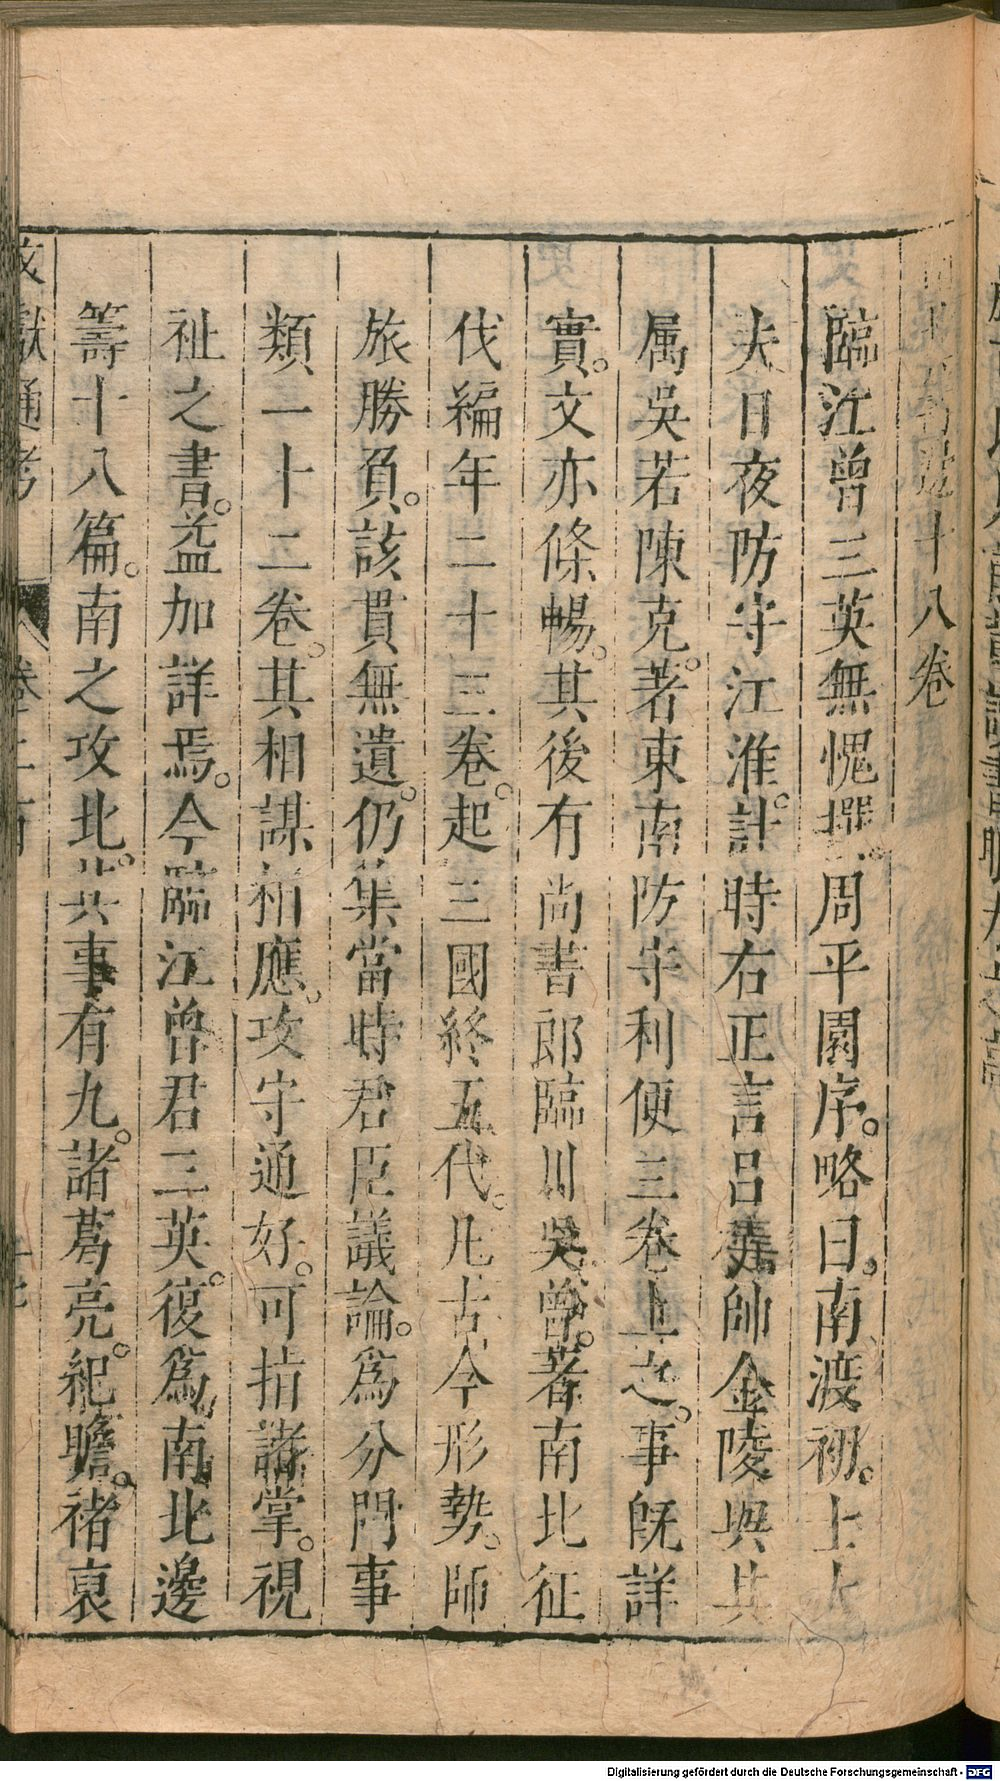 南北籌邊十八卷
臨江曾三英無愧撰。周平園序。略曰。南渡初。士大
夫日夜防守江淮。計時右正言呂祉帥金陵與其
属吳若陳克。著東南防守利便三卷上之。事旣詳
實。文亦條暢。其後有尚書郎臨川吳曾。著南北征
伐編年二十三卷。起三國終五代。凡古今形勢。師
旅勝負。該貫無遺。仍集當時君臣議論。爲分門事
類一十二卷。其相謀相應。攻守通好。可指諸掌。視
祉之書。益加詳焉。今臨江曾君三英。復爲南北邊
籌十八篇。南之攻北。其事有九。諸葛亮。紀瞻。禇裒
文獻通考
卷二百
Digitalisierung gefördert durch die Deutsche Forschungsgemeinschaft - DFG